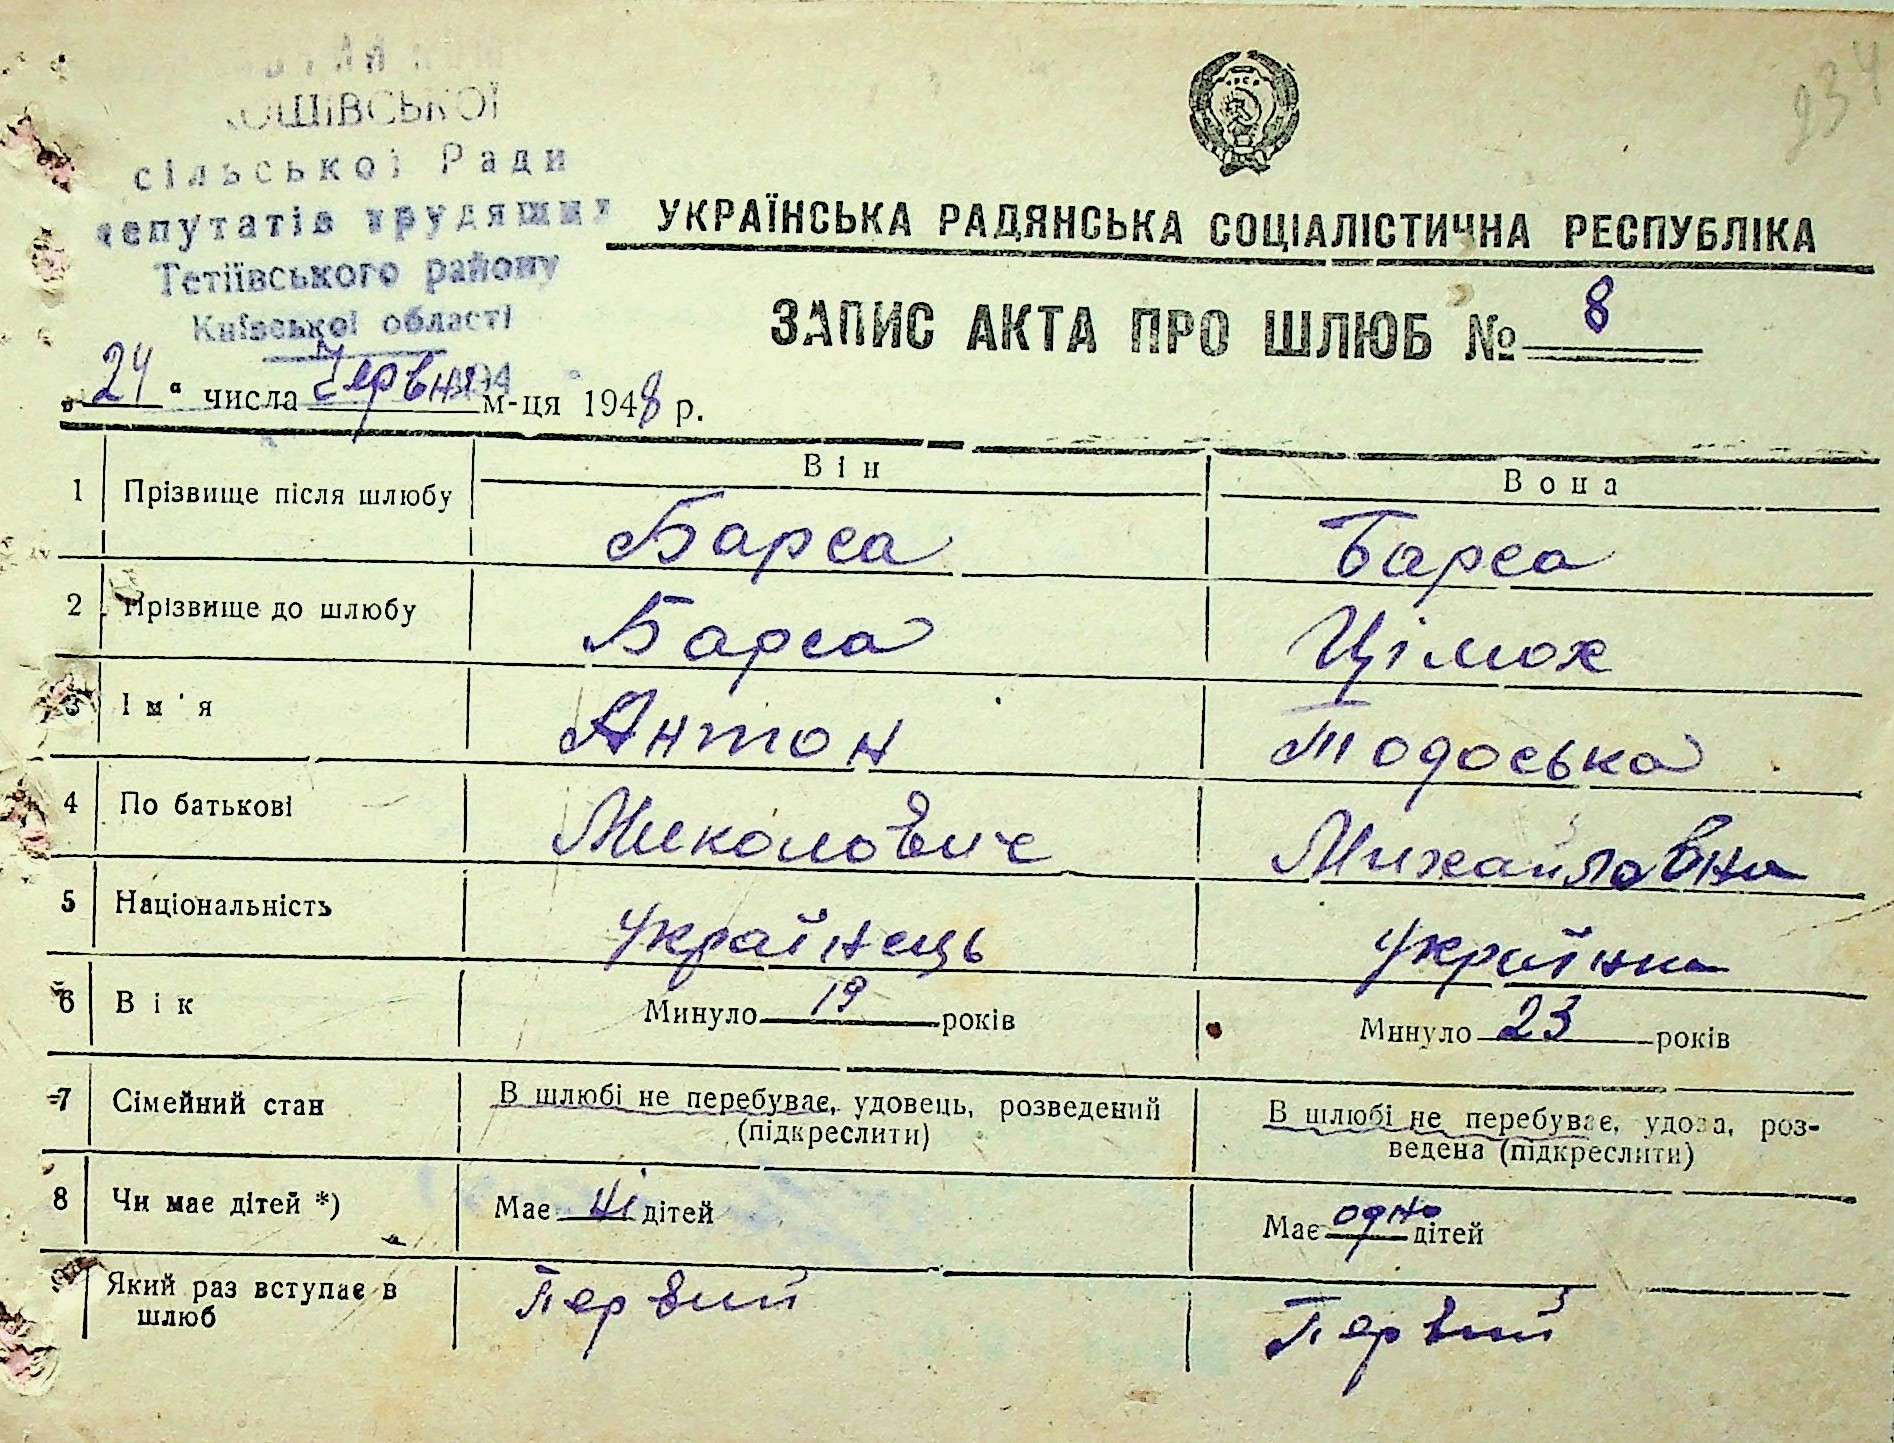 234
КОШІВСЬКОЇ
сільської Ради
депутатів трудящих
Тетіївського району
Київської області
УКРАЇНСЬКА РАДЯНСЬКА СОЦІАЛІСТИЧНА РЕСПУБЛІКА
ЗАПИС АКТА ПРО ШЛЮБ № 8
„24“ числа Червня м-ця 1948 р.
Він Вона
1 Прізвище після шлюбу Барса Барса
2 Прізвище до шлюбу Барса Цімох
3 Ім'я Антон Тодоська
4 По батькові Миколович Михайловна
5 Національність Українець Українка
6 Вік Минуло 19 років Минуло 23 років
7 Сімейний стан В шлюбі не перебуває, удовець, розведений (підкреслити) В шлюбі не перебуває, удова, роз-
ведена (підкреслити)
8 Чи має дітей *) Має ні дітей Має одно дітей
9 Який раз вступає в Первий Первий
шлюб